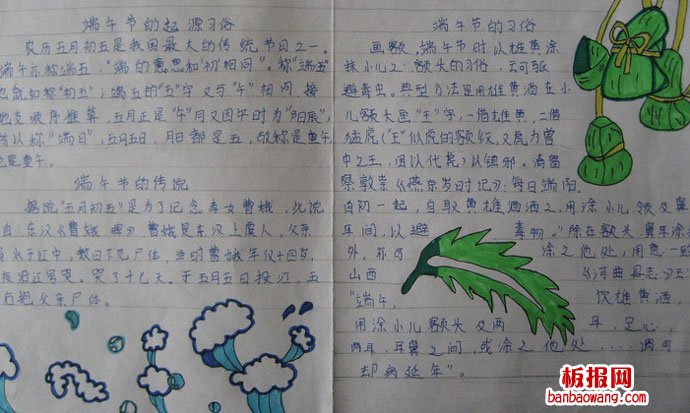 端午节的起源习俗
农历五月初五是我国最大的传统节日之一。
端午亦称端五，"端的意思和"初"相同"，称"端五"
也就如称"初五"；端五的"五"字又与"午"相同 按
地支顺序推算，五月正是"午"月又因午时为"阳辰"，
所以称"端日"，五月五日，月日都是五，故称是重午
也是重午。
端午节的传说
据说"五月初五"是为了纪念孝女曹娥，此说
自 东汉《曹娥 》 曹娥是东汉上虞人，父亲
于江中，数日不见尸体，当时曹娥年仅十四岁，
沿江号哭。哭了十七天。于五月五日投江，五
抱父亲尸体。
端午节的习俗
画额，端午节时以雄黄涂
抹小儿之额头的习俗，云可驱
避毒虫。典型方法是用雄黄酒在小
儿额头画"王"字，一借雄黄，二借
猛虎（"王"似虎的额纹，又虎为兽
中之王，因以代虎，以镇邪。清富
察敦崇《燕京岁时记》：每日端阳，
自初一起，自取黄雄洒酒之，用涂小儿领及鼻
耳间，以避 毒物。"除在额头、鼻耳涂
外，亦可 涂之他处，用意一致
山西 《河曲县志》云：
"端午， 饮雄黄酒，
用涂小儿额头及两 耳，足心，
两耳、耳鼻之间，或涂之他处……谓可
却病延年"。
板报网
banbaowang.com